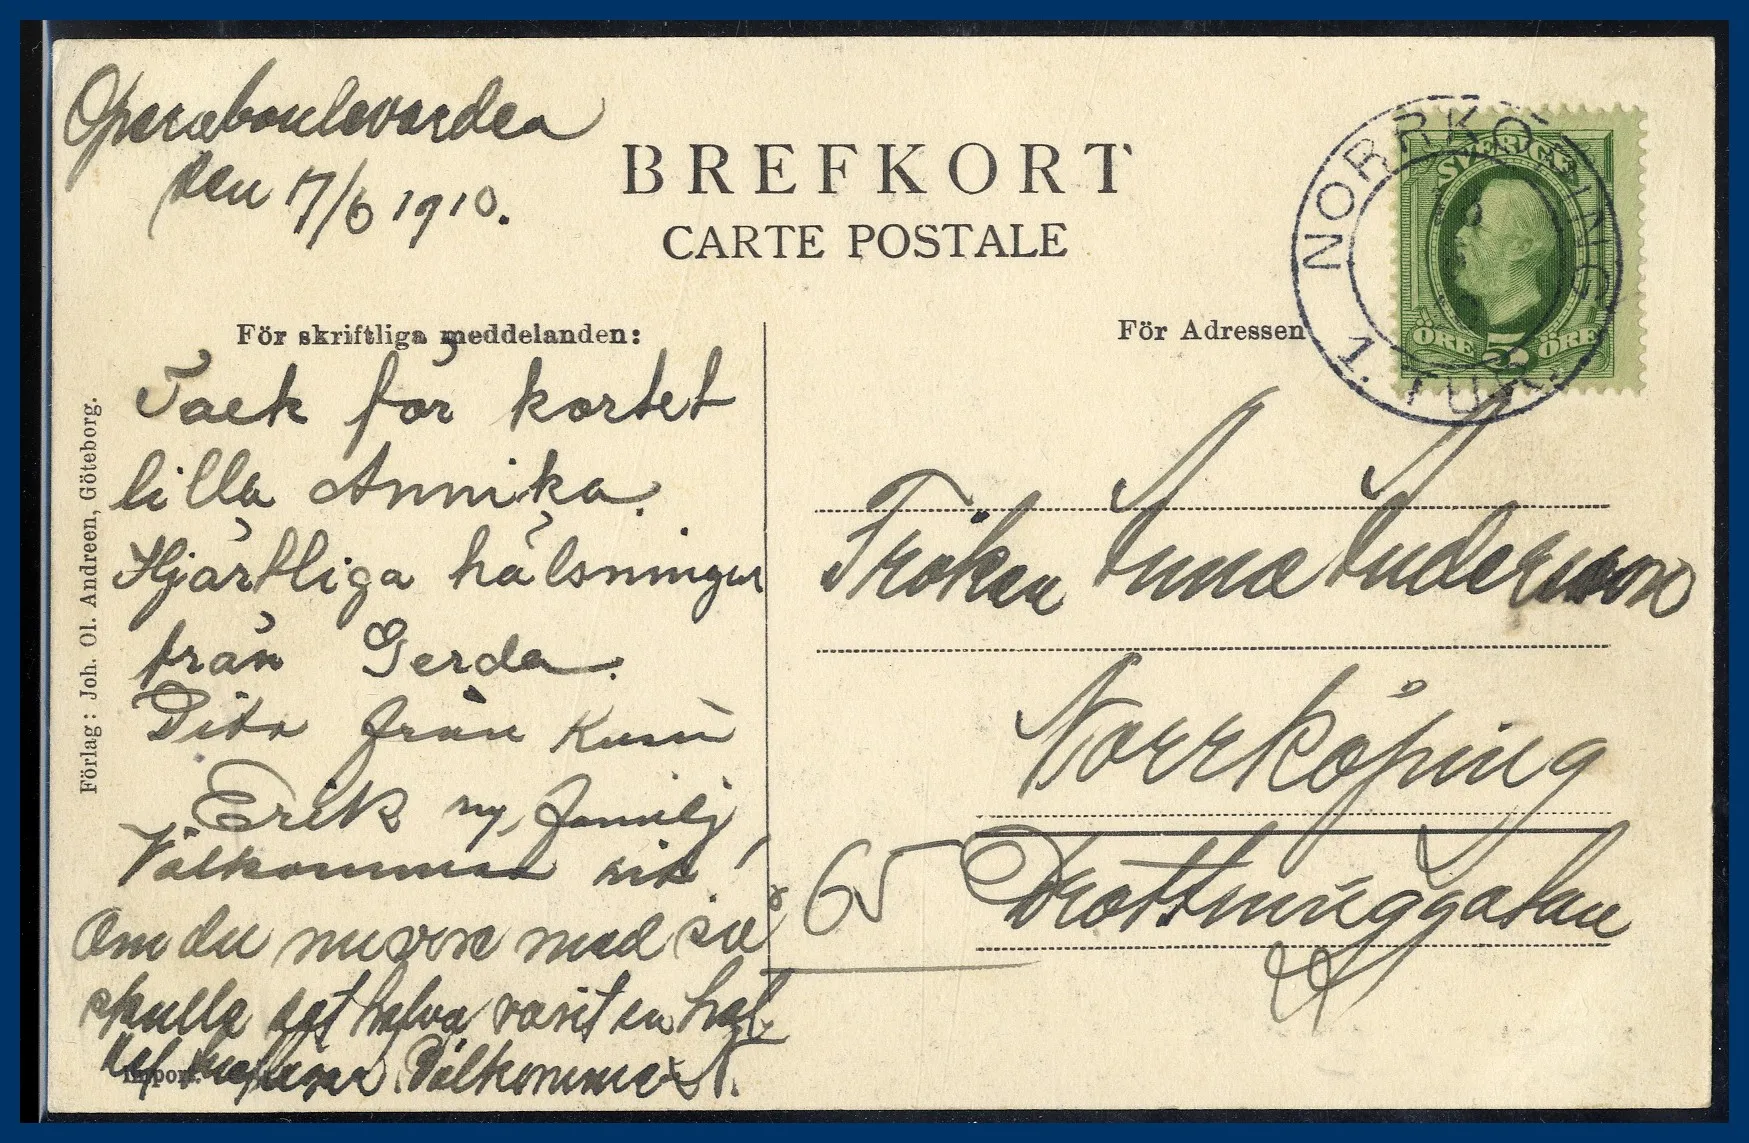 Operaboulevarden
den 17/6 1910.
BREFKORT
CARTE POSTALE
NORRKÖPING
1. TUR.
SVERIGE
ÖRE 5 ÖRE
För skriftliga meddelanden:
För Adressen
Förlag: Joh. Ol. Andreen, Göteborg.
Tack för kortet
lilla Annika.
Hjärtliga hälsningar
från Gerda.
Dito från
Erik familj
Välkommen hit!
Om du med så
skulle det halva varit en
Välkommen
Import.
Fröken Anna Anderson
Norrköping
65 Drottninggatan